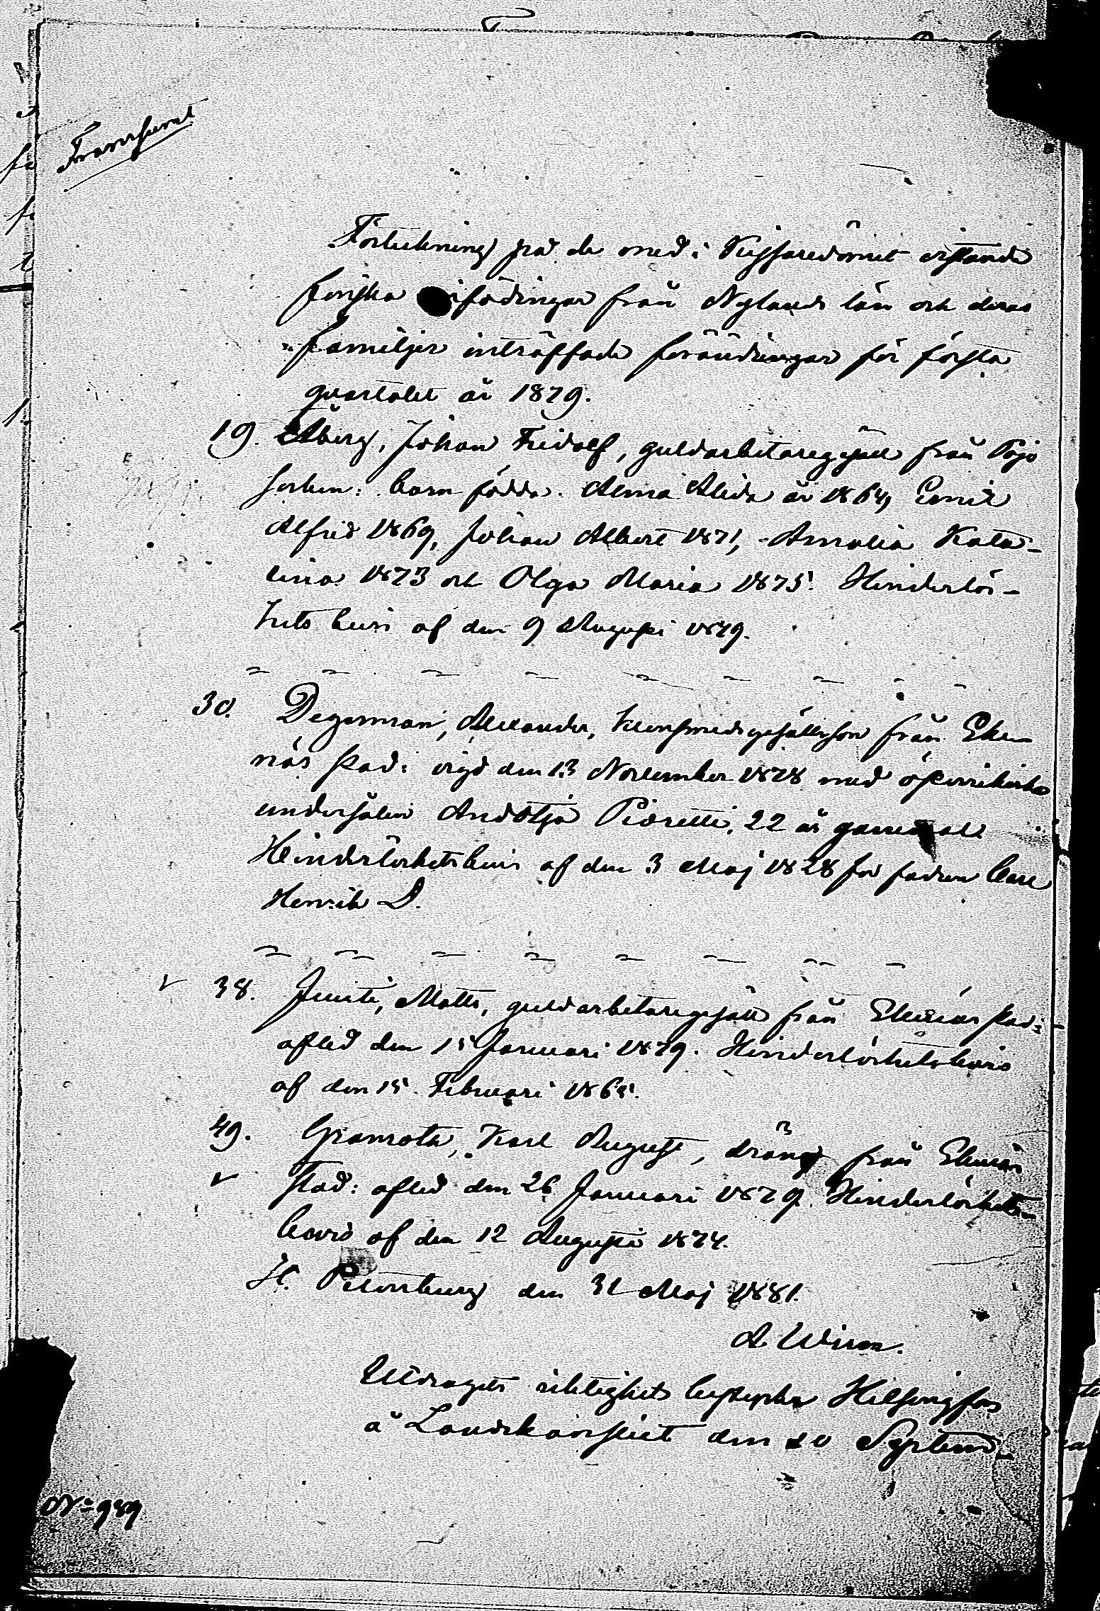 Förteckning på de med i Kejsaredömet vistande
finska infödingar från Nylands län och deras
familjer inträffade förändringar för första
quartalet år 1879.
19. Åberg, Johan Fridolf, guldarbetaregesäll från Pojo
socken: barn födda. Alma Alida år 1864, Emil
Alfred 1869, Johan Albert 1871, Amalia Kata-
rina 1873 och Olga Maria 1875. Hinderlös-
hets bevis af den 9 Augusti 1879.
30. Degerman, Alexander, gesällson från Eke-
näs stad: vigd den 13 November 1878 med österrikiska
undersåten Andotja Pioretti, 22 år gammal
Hinderlöshetsbevis af den 3 Maj 1828 för fadren Carl
Henrik D.
38. Matts, guldarbetaregesäll från Ekenäs stad:
afled den 15 Januari 1879. Hinderlöshetsbevis
af den 15 Februari 1865.
49. Granroth, Karl August, dräng från Ekenäs
stad: afled den 26 Januari 1879. Hinderlöshets-
bevis af den 12 Augusti 1874.
St. Petersburg den 31 Maj 1881.
A Wirén.
Utdragets riktighet Helsingfors
å Landskansliet den 20 Septemb.
No 989